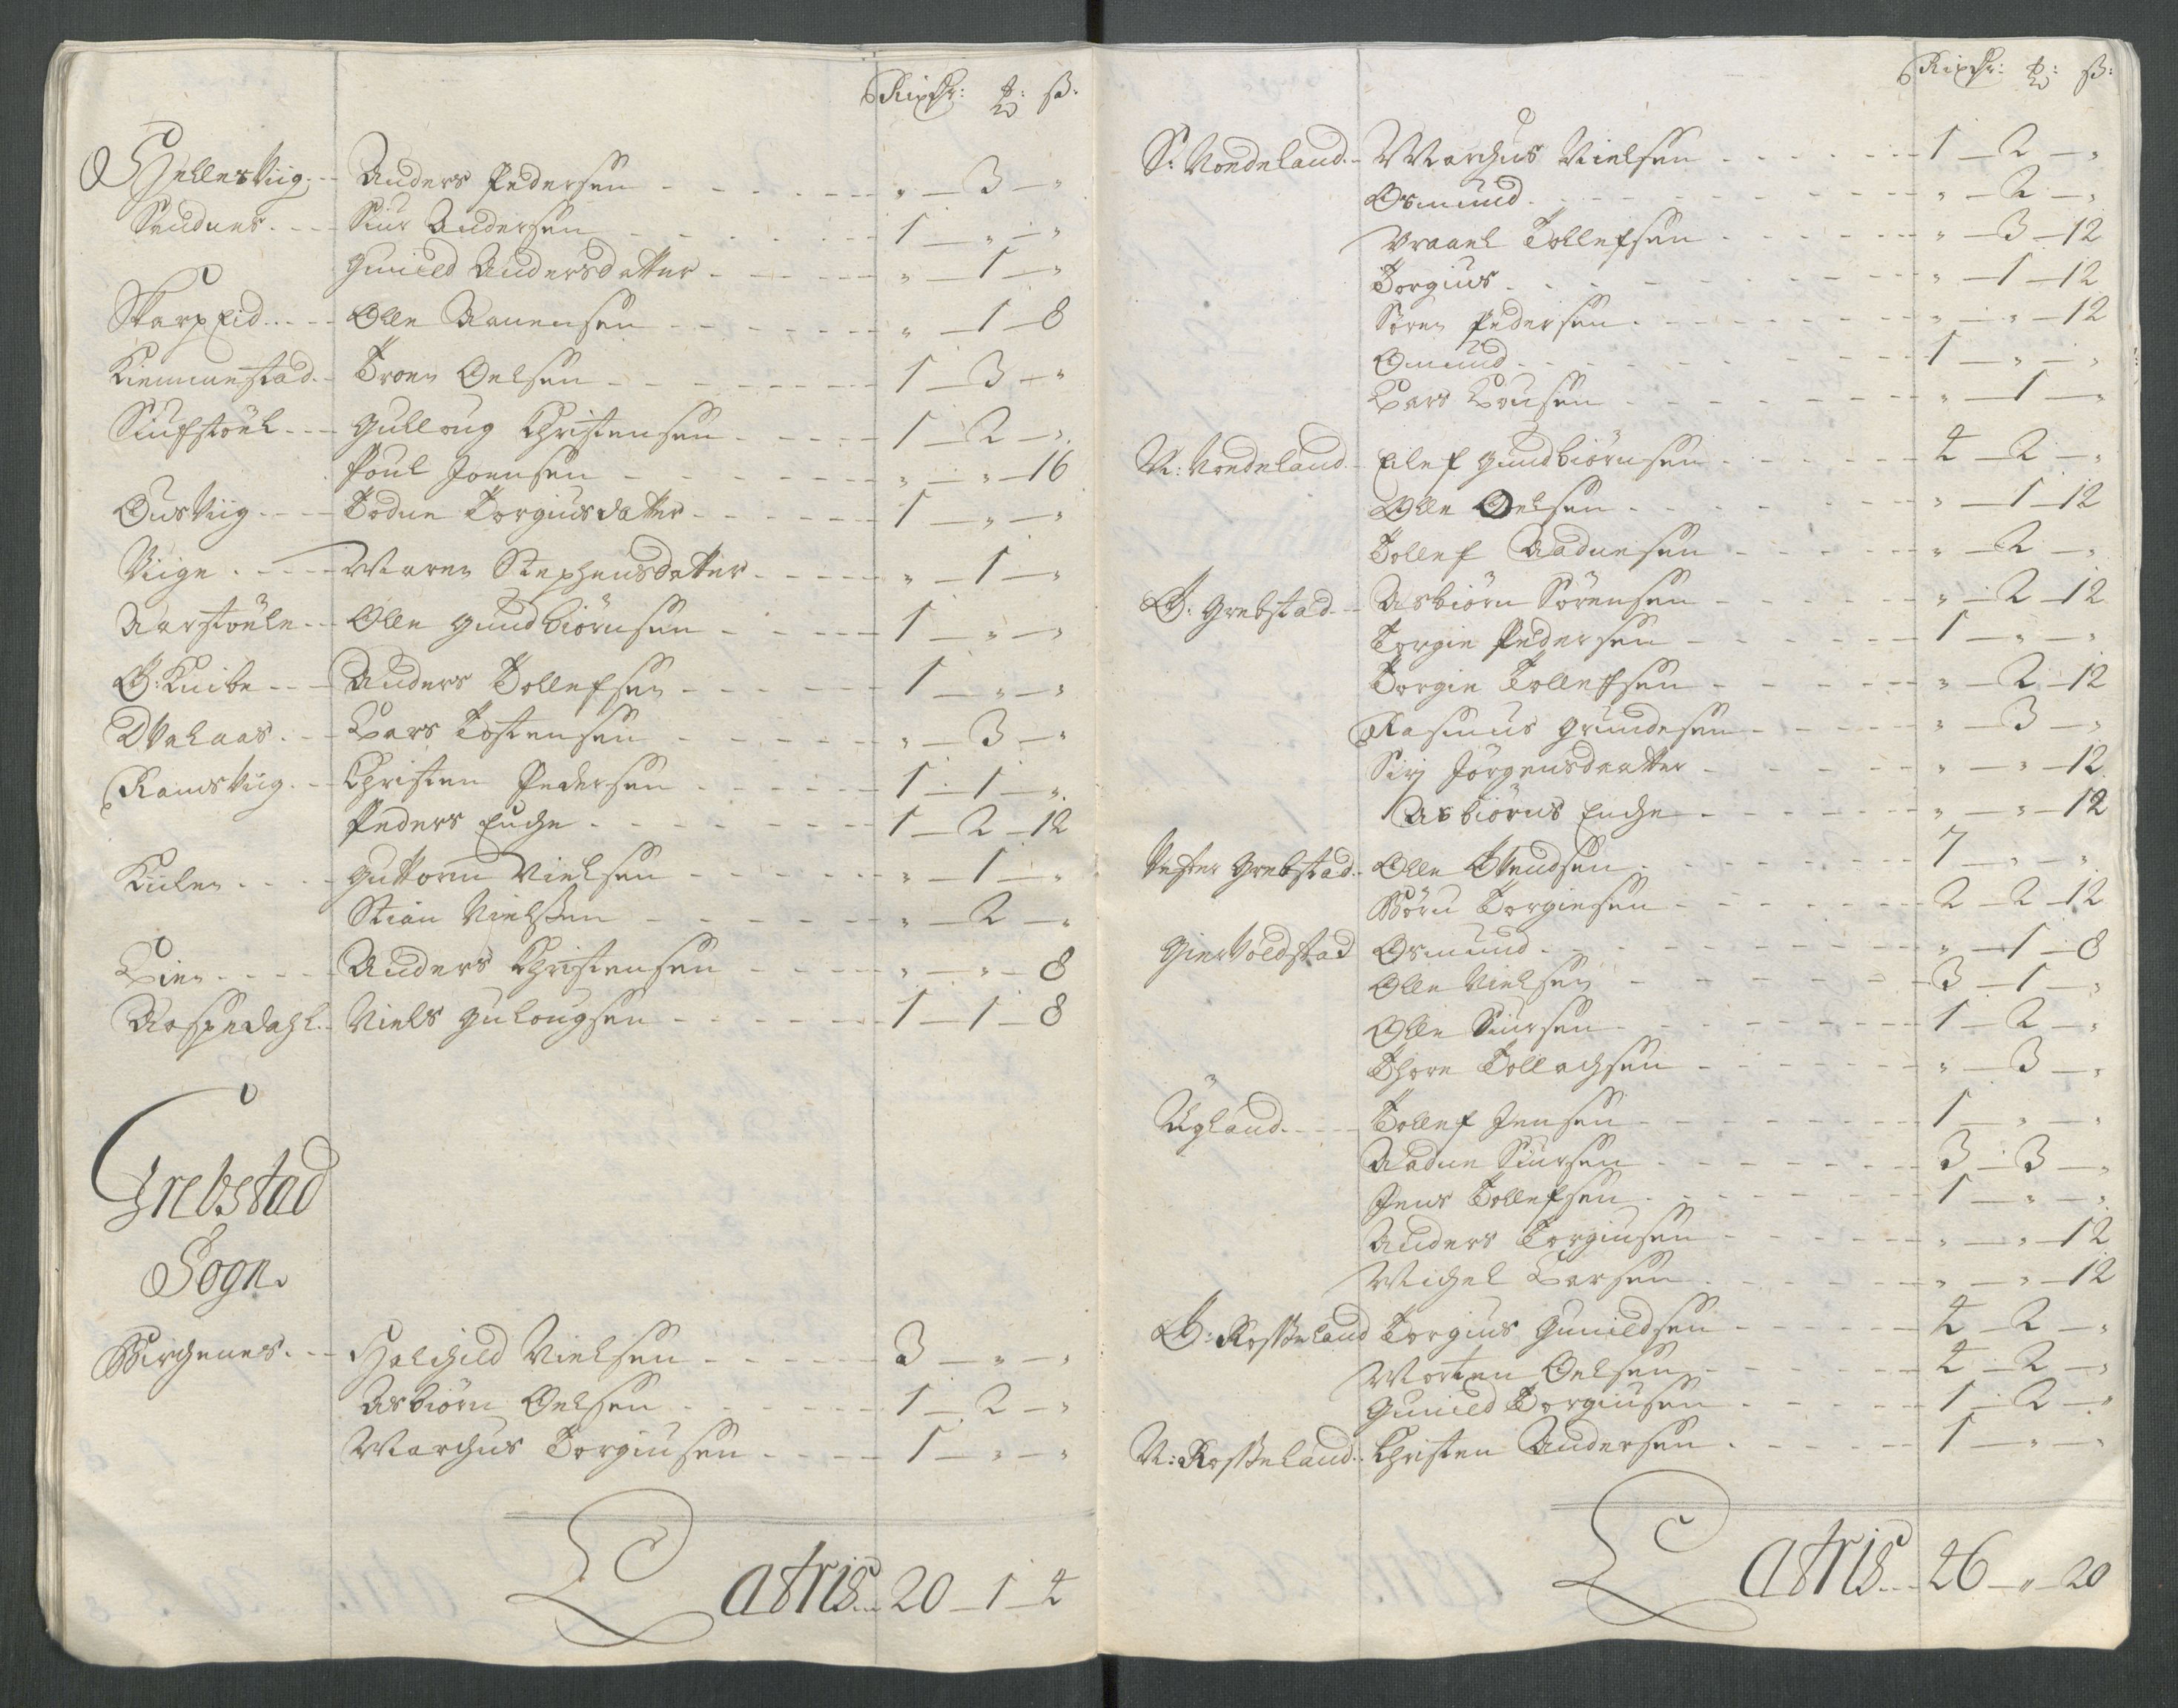 Rixdr: ℔: ß:
Hellesviig Anders Pedersen „ — 3 — „
Sandnes Siur Andersen 1 — „ — „
Gunild Andersdatter „ — 1 — „
Skarpeid Olle Aanensen „ — 1 — 8
Kiemmestad Troen Oelsen 1 — 3 — „
Gulloug Christensen 1 — 2 — „
Poul Joensen „ — „ — 16
Ousviig Todne Torgiusdatter 1 — „ — „
Viige Maren Stephensdatter „ — 1 — „
Aarstöele Olle Gundbiörnsen 1 — „ — „
Ø: Knibe Anders Tollefsen 1 — „ — „
Dvalaas Lars Tostensen „ — 3 — „
Ramsviig Christen Pedersen 1 — 1 — „
Peders Encke 1 — 2 — 12
Kiilen Guttorm Nielsen „ — 1 — „
Stian Nielssen „ — 2 — „
Lien Anders Christensen „ — „ — 8
Aaspedahl Niels Gulougsen 1 — 1 — 8
Grebstad
Sogn.
Birchenes Halchild Nielsen 3 — „ — „
Asbiörn Oelsen 1 — 2 — „
Marchus Torgiusen 1 — „ — „
Latris 20 — 1 — 4
Rixdr: ℔: ß:
S: Voedeland Marchus Nielsen 1 — 2 — „
Osmund „ — 2 — „
Vraael Tollefsen „ — 3 — 12
Torgius „ — 1 — 12
Sören Pedersen „ — „ — 12
Omund 1 — „ — „
Lars Lousen „ — 1 — „
N: Voedeland Elef Gundbiörnsen 4 — 2 — „
Olle Oelsen „ — 1 — 12
Tollef Aadnesen „ — 2 — „
Ø: Grebstad Asbiörn Sörensen „ — 2 — 12
Torgie Pedersen 1 — „ — „
Torgie Tollefsen „ — 2 — 12
Rasmus Grundesen „ — 3 — „
Sirj Jörgensdaatter „ — „ — 12
Asbiörns Encke „ — „ — 12
Vester Grebstad Olle Stendsen 7 — „ — „
Börn Torgiesen 2 — 2 — 12
Giervoldstad Osmund „ — 1 — 8
Olle Nielsen 3 — 1 — „
Olle Siursen 1 — 2 — „
Thore Tollachsen „ — 3 — „
Ugland Tollef Jensen 1 — „ — „
Aadne Siursen 3 — 3 — „
Jens Tollefsen 1 — „ — „
Anders Torgiusen „ — „ — 12
Michel Larsen „ — „ — 12
Ø: Rosseland Torgius Gunildsen 4 — 2 — „
Morten Oelsen 4 — 2 — „
Gunild Torgiusen 1 — 2 — „
N: Rosseland Christen Andersen 1 — „ — „
Latris 46 — „ — 20